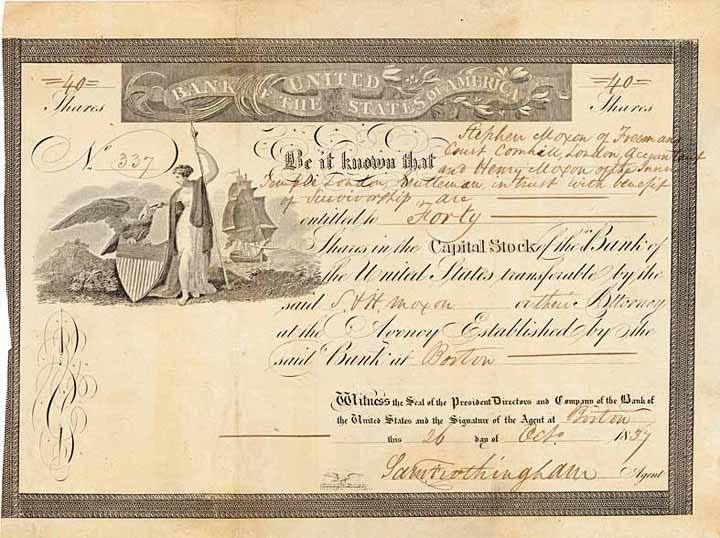 40 Shares
BANK OF THE UNITED STATES OF AMERICA
40 Shares
No 337
Be it known that Stephen Moxon of Freemans
Court Cornhill, London, Accountant
and Henry Moxon of the Inner
Temple London, Gentleman, in trust with benefit
of Survivorship, are
entitled to Forty
Shares in the Capital Stock of the "Bank of
the United States, transferable by the
said S & H. Moxon or their Attorney
at the Agency Established by the
said "Bank" at Boston
Witness the Seal of the President Directors and Company of the Bank of
the United States and the Signature of the Agent at Boston
this 26 day of Octo 1837
Sam Frothingham Agent